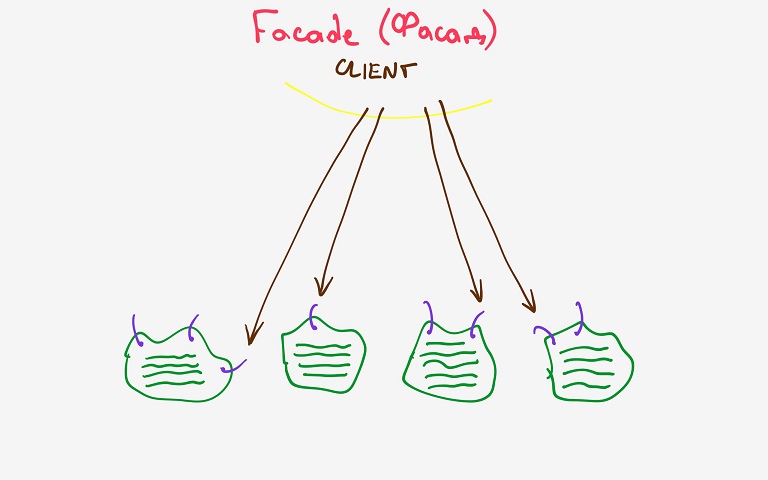 Facade (Фасад)
CLIENT